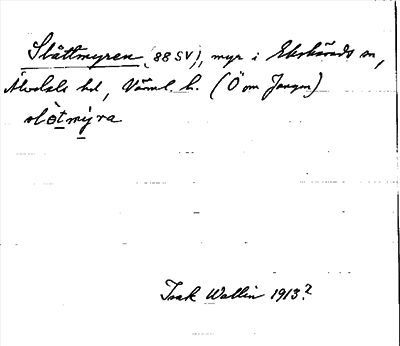 Slåttmyren (88 SV), myr i Ekshärads sn,
Älvdals hd, Värml. l. (Ö om Jangen)
slòtmýra
Isak Wallin 1913?